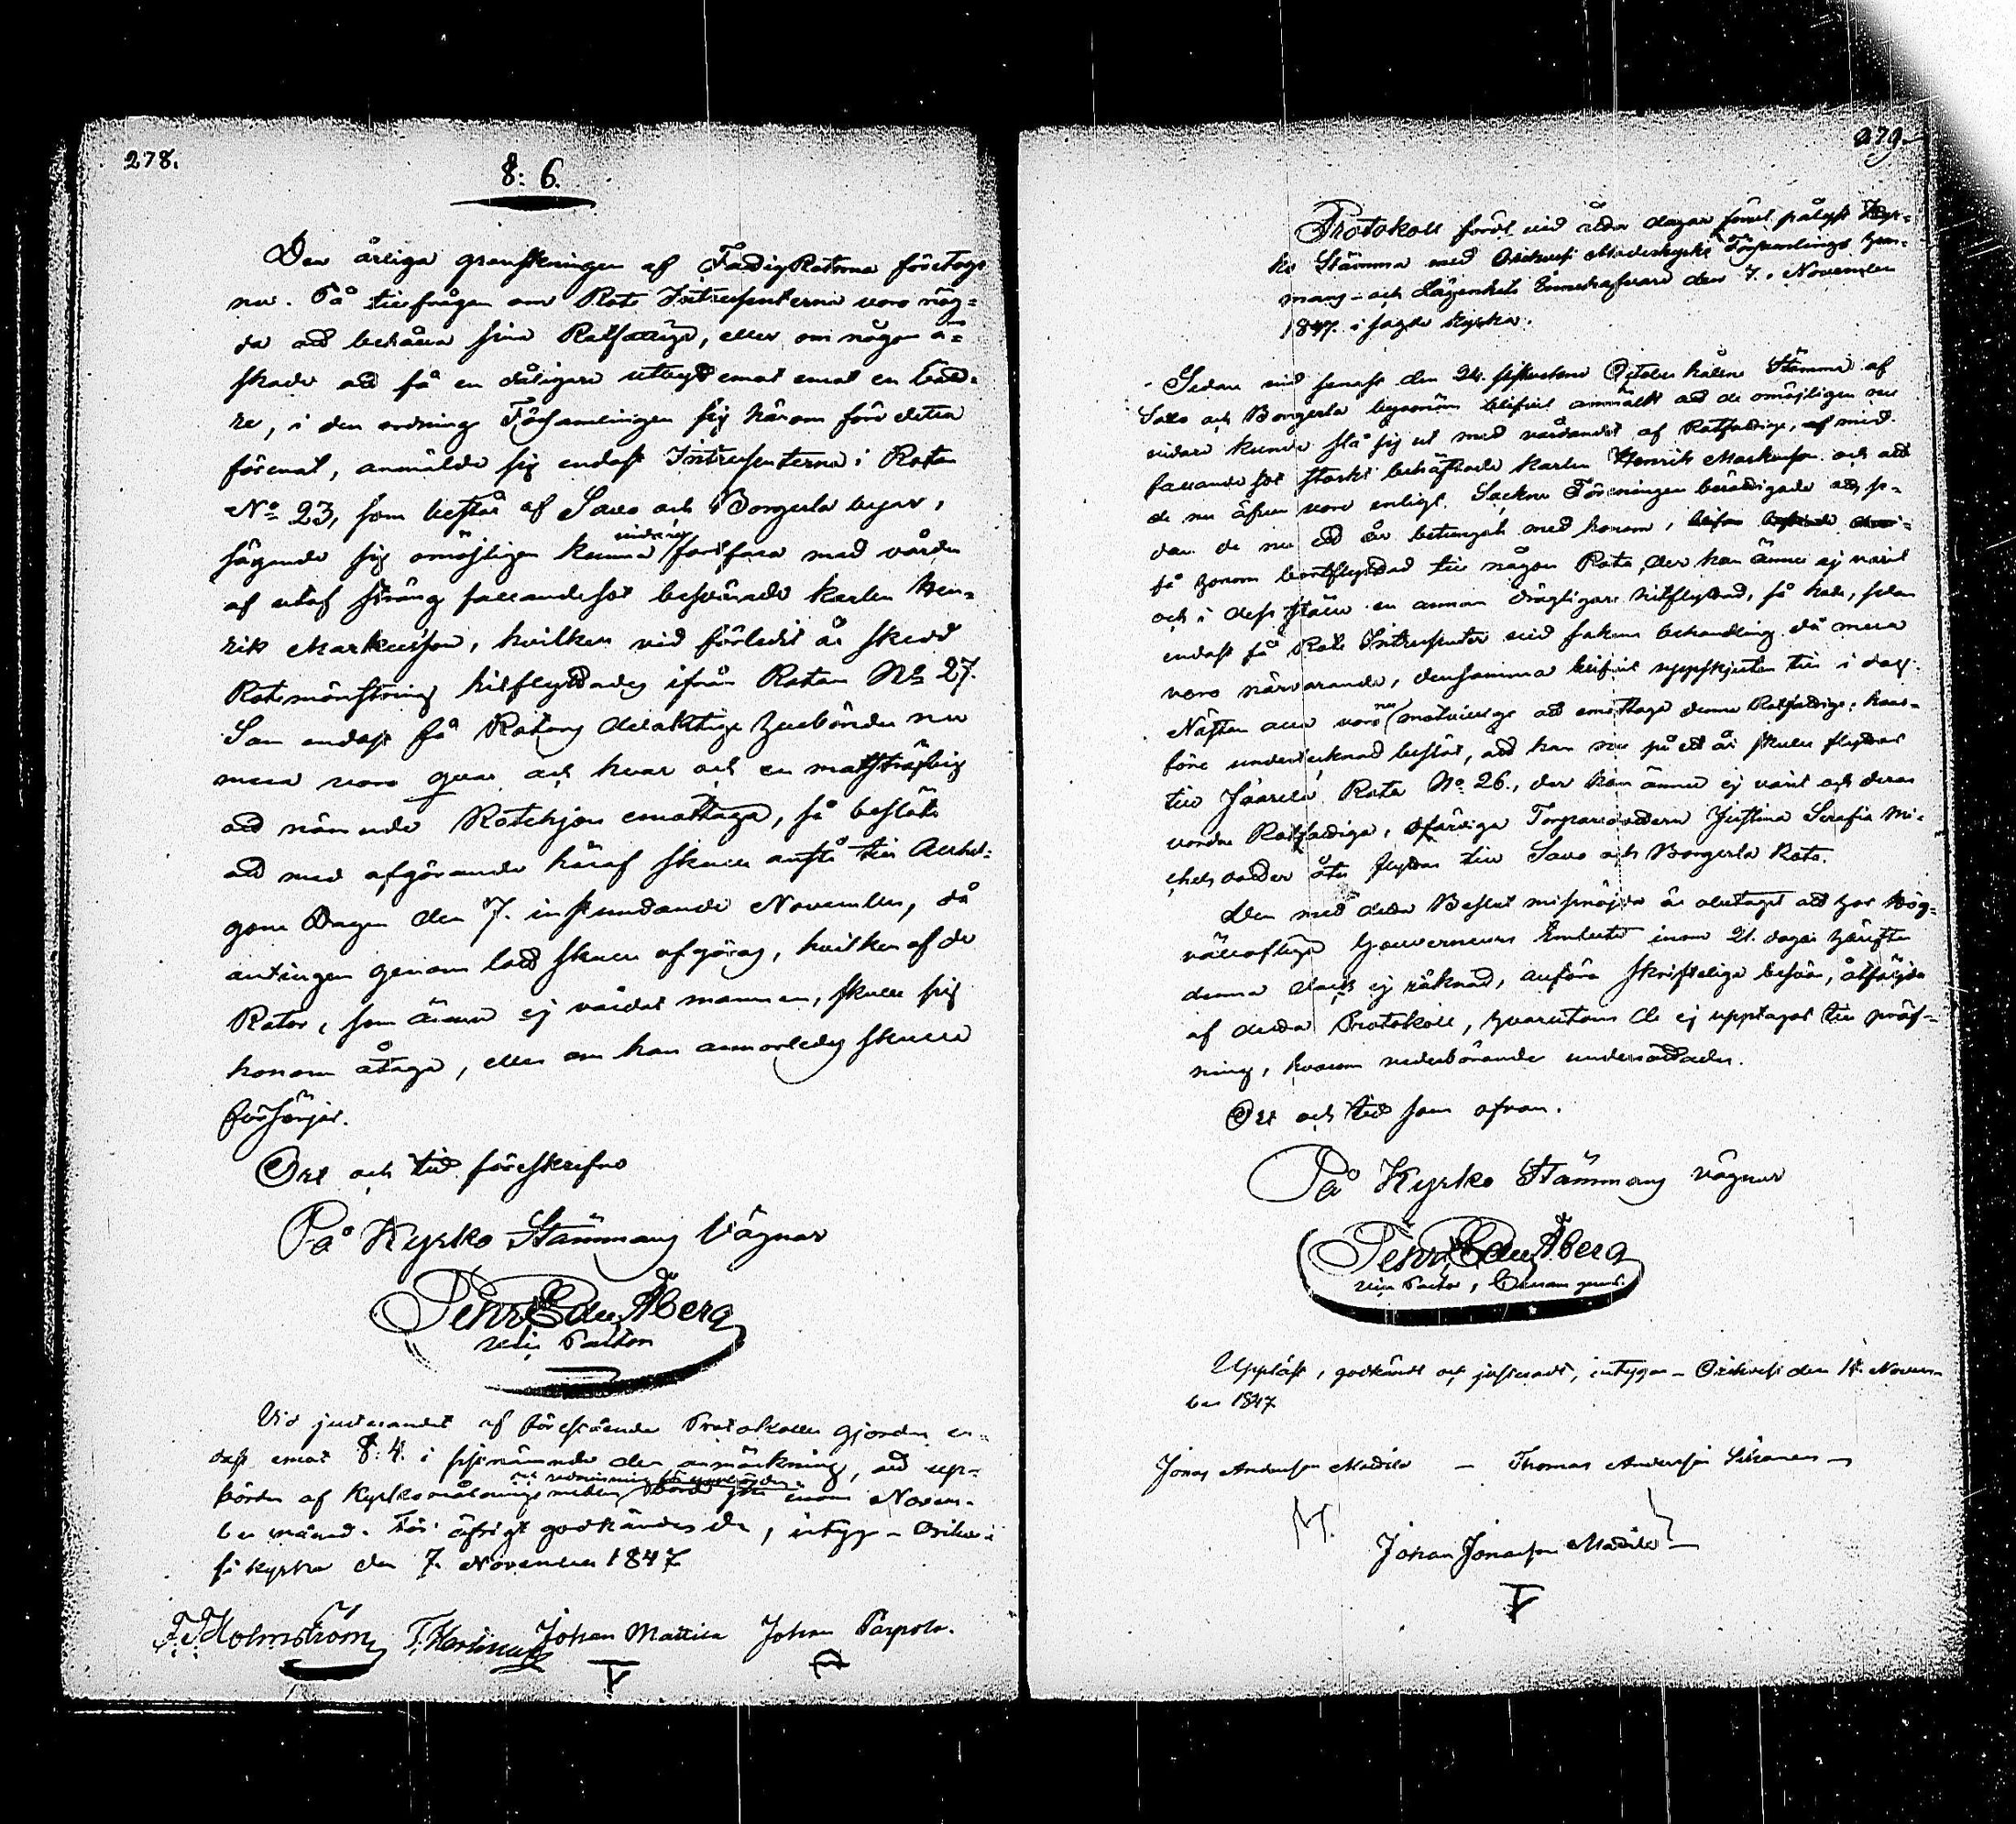 278.
8: 6.
Den årliga granskningen af FattigRotorna företogs
nu. På tillfrågan om Rote Intressenterna voro nög-
da att behålla sina Rotfattiga, eller om någon ä-
skade att få en dåligare utbytt emot en bätt-
re, i den ordning Församlingen sig härom förr detta
förenat, anmälde sig endast Intressenterna i Rotan
No 23, som består af Savo och Borgerla byar,
sägande sig omöjligen kunna vidare fortfara med vården
af utaf sträng fallandesot besvärade karlen Hen-
rik Markusson, hvilken vid förledit år skedd
Rotemönstring hitflyttades ifrån Rotan No 27.
Som endast få Rotans delaktige Husbönder nu
mera voro qvar och hvar och en motsträfvig
att nämnde Rotehjon emottaga, så beslöts
att med afgörande häraf skulle anstå till Allhel-
gona Dagen den 7. instundande November, då
antingen genom lott skulle afgöras, hvilken af de
Rotor, som ännu ej vårdat mannen, skulle sig
honom åtaga, eller om han annorledes skulle
försörjas.
Ort och tid föreskrifne
På Kyrko Stämmans Vägnar
Pehr Edu. Åberg
vice Pastor
Vid justerandet af förestående Protokoll gjordes en-
dast emot 8: 4. i sistnämnde den anmärkning, att upp-
börden af Kyrkomålningsmedlen
inom Novem-
ber månad. För öfrigt godkändes det, intyga - Orihve-
si kyrka den 7. November 1847
F. J. Holmström Johan Mattila Johan Parpola.
279.
Protokoll fördt vid åtta dagar förut pålyst Kyr-
ko Stämma med Orihvesi Moderkyrko Församlings Hem-
mans- och Lägenhets Innehafvare den 7. November
1847. i sagde kyrka.
Sedan vid senast den 24. sistvikne October hållne Stämma af
Savo och Borgerla byamän blifvit anmäldt att de omöjligen nu
vidare kunde slå sig ut med vårdandet af Rotfattige, af
fallandesot starkt behäftade karlen Henrik Markusson och att
de nu äfven voro enligt Sockne Föreningen berättigade att, se-
dan de nu ett år betungats med honom,
få honom bortflyttad till någon Rota, der han ännu ej varit
och i dess ställe en annan drägligare hitflyttad, så hade, sedan
endast få Rote Intressenter vid sakens behandling då mera
voro närvarande, densamma blifvit uppskjuten till i dag.
Nästan alla voro nu motvillige att emottaga denne Rotfattige; hvar-
före undertecknad beslöt, att han nu på ett år skulle flyttas
till Rota No 26., der han ännu ej varit och deras
vordne Rotfattiga, ofärdiga Torparedottern Justina Serafia Mi-
chelsdotter åter flyttas till Savo och Borgerla Rota.
Den med detta Beslut missnöjde är obetaget att hos Hög-
vällofliga Gouverneurs Embetet inom 21. dagar härefter
denna dock ej räknad, anföra skrifteliga besvär, åtföljde
af detta Protokoll, hvarutom de ej upptagas till pröf-
ning, hvarom vederbörande underrättades.
Ort och tid som ofvan.
På Kyrko Stämmans vägnar
Pehr Edu. Åberg
vice Pastor,
Uppläst, godkändt och justeradt, intyga - Orihvesi den 14. Novem-
ber 1847
Jonas Andersson Mattila - Thomas Andersson
Johan Jonasson Mattila -